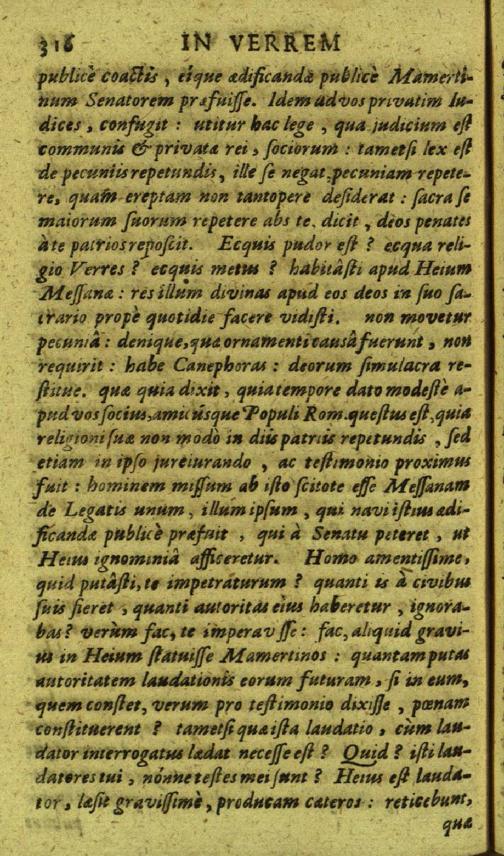 316 IN VERREM
publicè coactis, eique ædificandæ publicè Mamerti-
num Senatorem præfuisse. Idem ad vos privatim Iu-
dices, confugit: utitur hac lege, qua judicium est
communis & privatæ rei, sociorum: tametsi lex est
de pecuniis repetundis, ille se negat pecuniam repete-
re, quam ereptam non tantopere desiderat: sacra se
maiorum suorum repetere abs te dicit, deos penates
à te patrios reposcit. Ecquis pudor est? ecqua reli-
gio Verres? ecquis metus? habitâsti apud Heium
Messanæ: res illum divinas apud eos deos in suo sa-
crario propè quotidie facere vidisti. non movetur
pecuniâ: denique, quæ ornamenti causâ fuerunt, non
requirit: habe Canephoras: deorum simulacra re-
stitue. quæ quia dixit, quia tempore dato modestè a-
pud vos socius, amicúsque Populi Rom. questus est, quia
religioni suæ non modò in diis patriis repetundis, sed
etiam in ipso jureiurando, ac testimonio proximus
fuit: hominem missum ab isto scitote esse Messanam
de Legatis unum, illum ipsum, qui navi istius ædi-
ficandæ publicè præfuit, qui à Senatu peteret, ut
Heius ignominiâ afficeretur. Homo amentissime,
quid putâsti, te impetraturum? quanti is à civibus
suis fieret, quanti autoritas eius haberetur, ignora-
bas? verùm fac, te imperavisse: fac, aliquid gravi-
us in Heium statuisse Mamertinos: quantam putas
autoritatem laudationis eorum futuram, si in eum,
quem constet, verum pro testimonio dixisse, pœnam
constituerent? tametsi quæ ista laudatio, cùm lau-
dator interrogatus lædat necesse est? Quid? isti lau-
datores tui, nónne testes mei sunt? Heius est lauda-
tor, læsit gravissimè, producam cæteros: reticebunt,
quæ